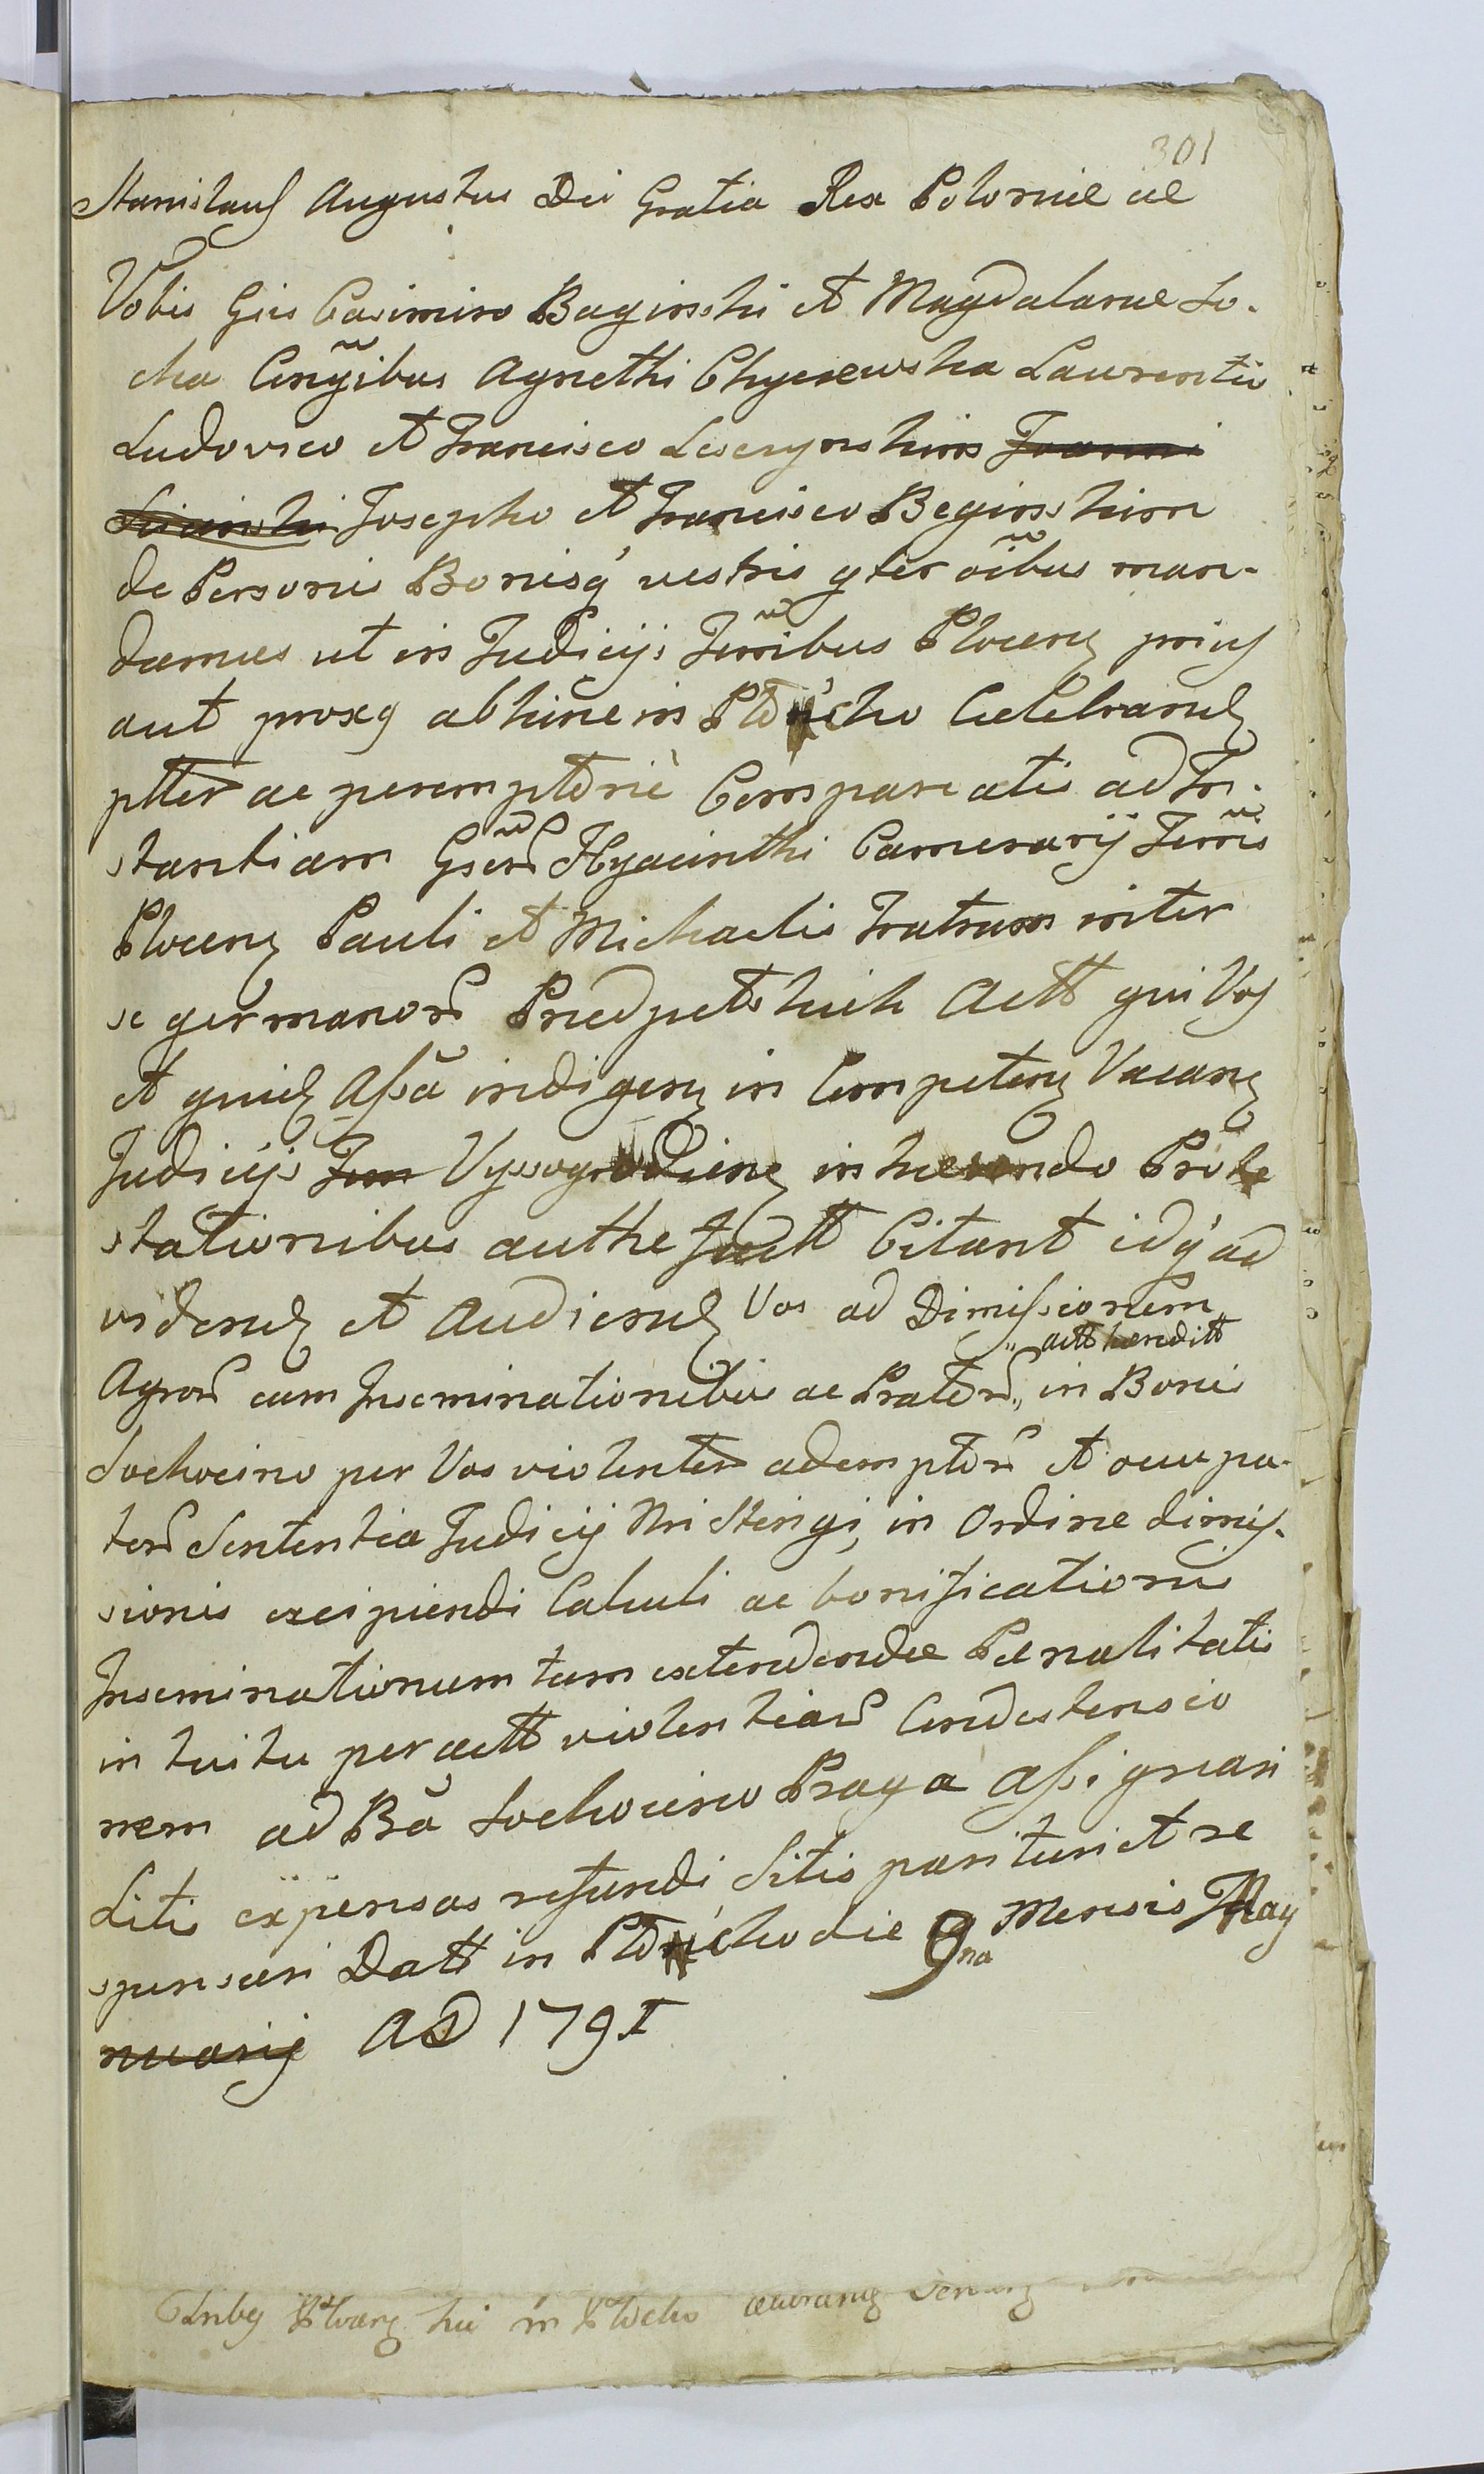 301
Stanislaus Augustus Dei Gratia Rex Poloniae ae
Vobis Gsis Casimiro Baginski et Magdalanae So-
cha Conjibus Agnethi Chyczewska Laurentio
Ludovico et Francisco Leszczynskim Joanni
Josepho et Francisco Beginskim
de Personis Bonisq vestris gter oibus man-
damus ut in Judicijs Terribus Plocen prius
aut proxe abhinc in Płońcko Celebrand
ptter ac peremptorie Compareatis ad In-
stantiam Gserm Hyacinthi Camerarij Terris
Plocen Pauli et Michaelis Fratrum inter
se germanorum Przedpełskich Actt qui Vos
et quid Assa indigen in Competen Vacan
Judicijs Terr Vyssogrodien inhaerendo Prote
stationibus authe factt Citant idq ad
vidend et Audiend Vos ad Dimissionem
actt hereditt
Agrorum cum Inseminationibus ac Pratorum in Bonis
Sochocino per Vos violenter ademptorum et occupa-
torum Sententia Judicij Nri Stingi, in Ordine dimis-
sionis excipiendi Calculi ac bonificationis
Inseminationum tum extendendae Paenalitatis
intuitu peractt violentiarum Condestensio
nem ad Ba Sochocino Praga assignari
Litis expensas refundi Sitis parituri et re
sponsuri Datt in Płońcko die 9na Mensis May
nuarij AD 1791
hic in